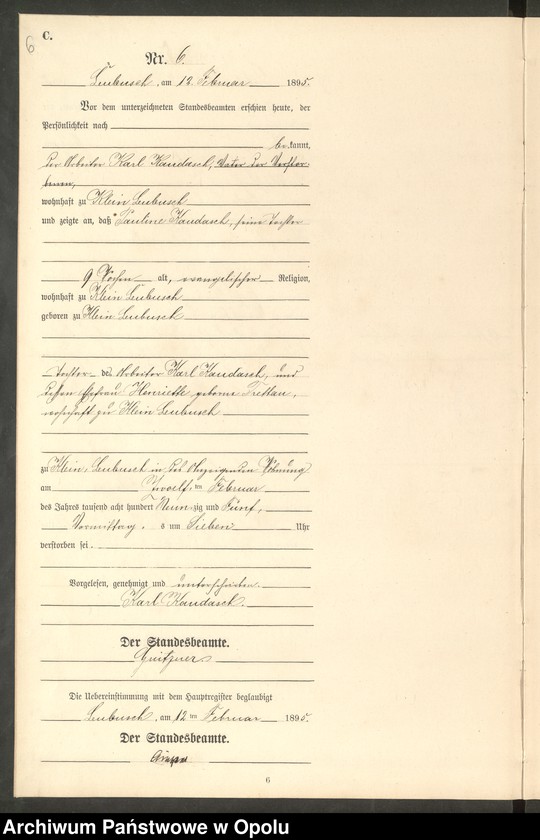 6
C.
Nr. 6.
Leubusch, am 12 Februar 1895.
Vor dem unterzeichneten Standesbeamten erschien heute, der
Persönlichkeit nach
be kannt,
der Arbeiter Karl Kandasch, Vater der Verstor
benen,
wohnhaft zu Klein Leubusch
und zeigte an, daß Pauline Kandasch, seine Tochter
9 Wochen alt, evangelischer Religion,
wohnhaft zu Klein Leubusch
geboren zu Klein Leubusch
Tochter des Arbeiter Karl Kandasch, und
dessen Ehefrau Henriette geborne
wohnhaft zu Klein Leubusch
zu Klein Leubusch in des Anzeigenden Wohnung
am Zwoelf ten Februar
des Jahres tausend acht hundert Neun zig und Fünf,
Vormittag s um Sieben Uhr
verstorben sei.
Vorgelesen, genehmigt und unterschrieben.
Karl Kandasch.
Der Standesbeamte.
Die Uebereinstimmung mit dem Hauptregister beglaubigt
Leubusch, am 12 ten Februar 1895.
Der Standesbeamte.
6
Archiwum Państwowe w Opolu